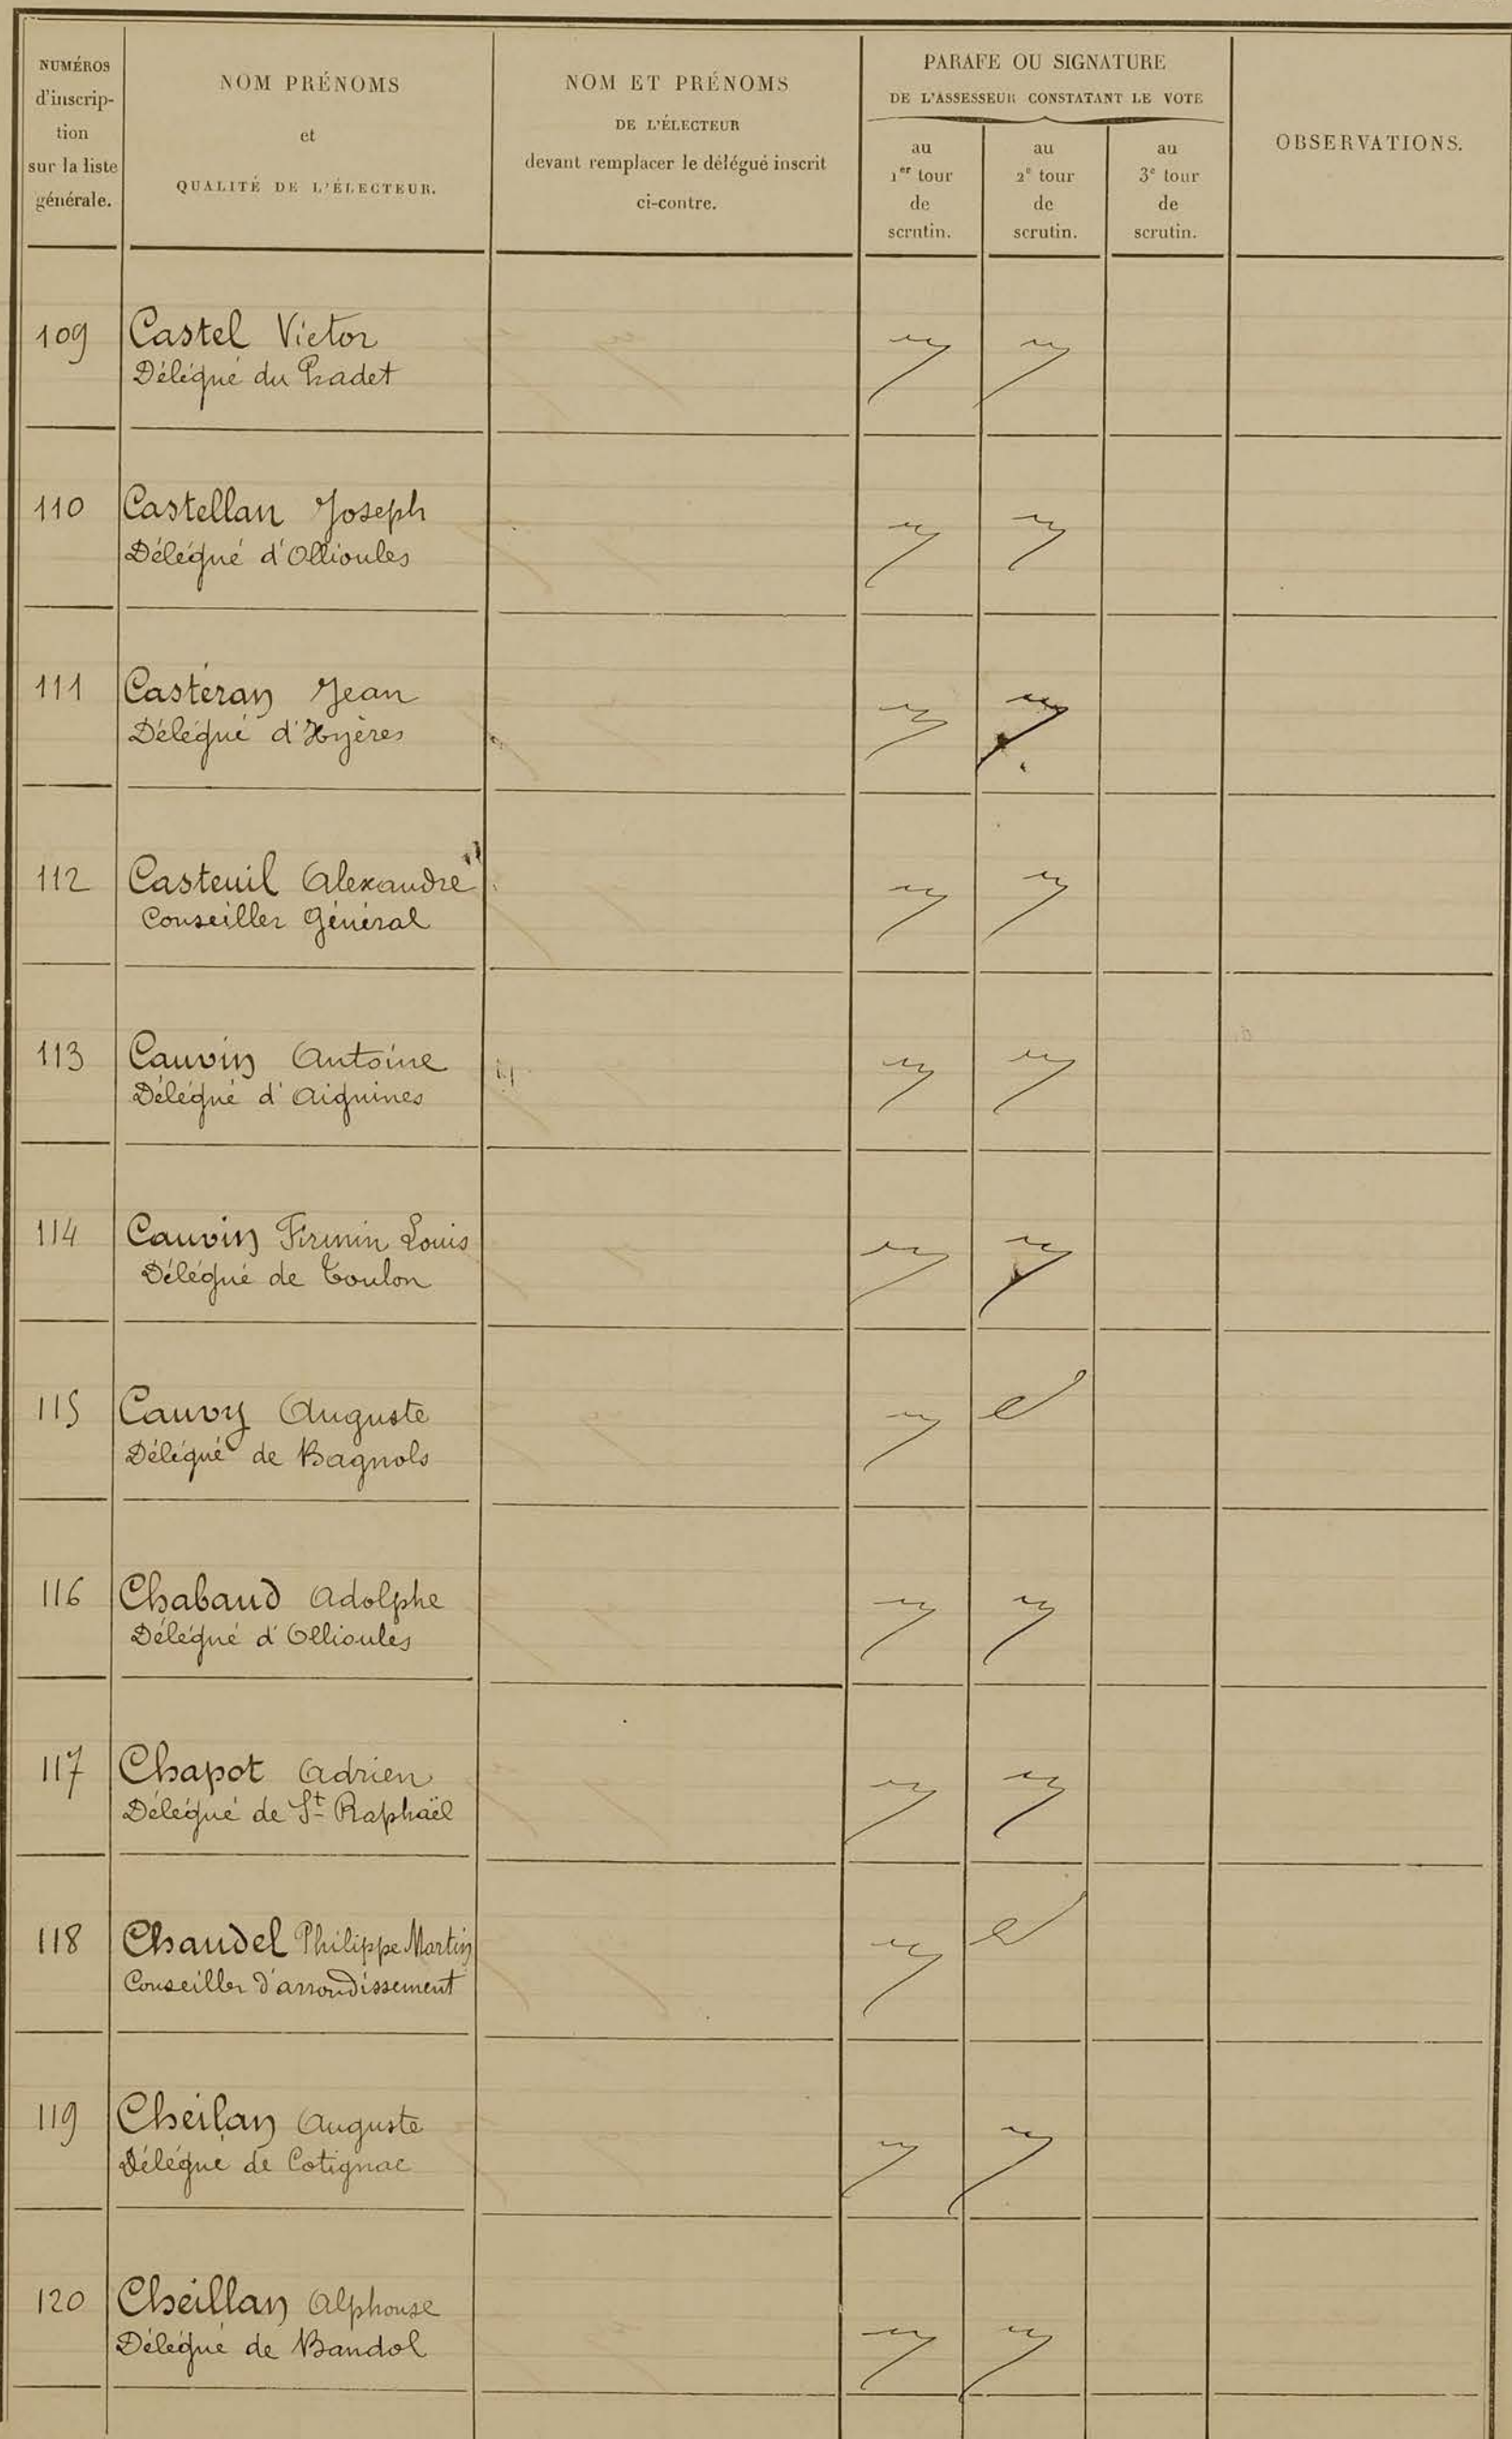 NUMÉROS
d'inscrip-
tion
sur la liste
générale.
NOM PRÉNOMS
et
QUALITÉ DE L'ÉLECTEUR.
NOM ET PRÉNOMS
DE L'ÉLECTEUR
devant remplacer le délégué inscrit
ci-contre.
PARAFE OU SIGNATURE
DE L'ASSESSEUR CONSTATANT LE VOTE
au
1er tour
de
scrutin.
au
2e tour
de
scrutin.
au
3e tour
de
scrutin.
OBSERVATIONS.
109 Castel Victor
Délégué du Pradet
110 Castellan Joseph
Délégué d'Ollioules
111 Castéran Jean
Délégué d'Hyères
112 Casteuil Alexandre
Conseiller Général
113 Cauvin Antoine
Délégué d'Aiguines
114 Cauvin Firmin Louis
Délégué de Toulon
115 Cauvy Auguste
Délégué de Bagnols
116 Chabaud Adolphe
Délégué d'Ollioules
117 Chapot Adrien
Délégué de St Raphaël
118 Chaudel Philippe Martin
Conseiller d'arrondissement
119 Cheilan Auguste
Délégué de Cotignac
120 Cheillan Alphonse
Délégué de Bandol